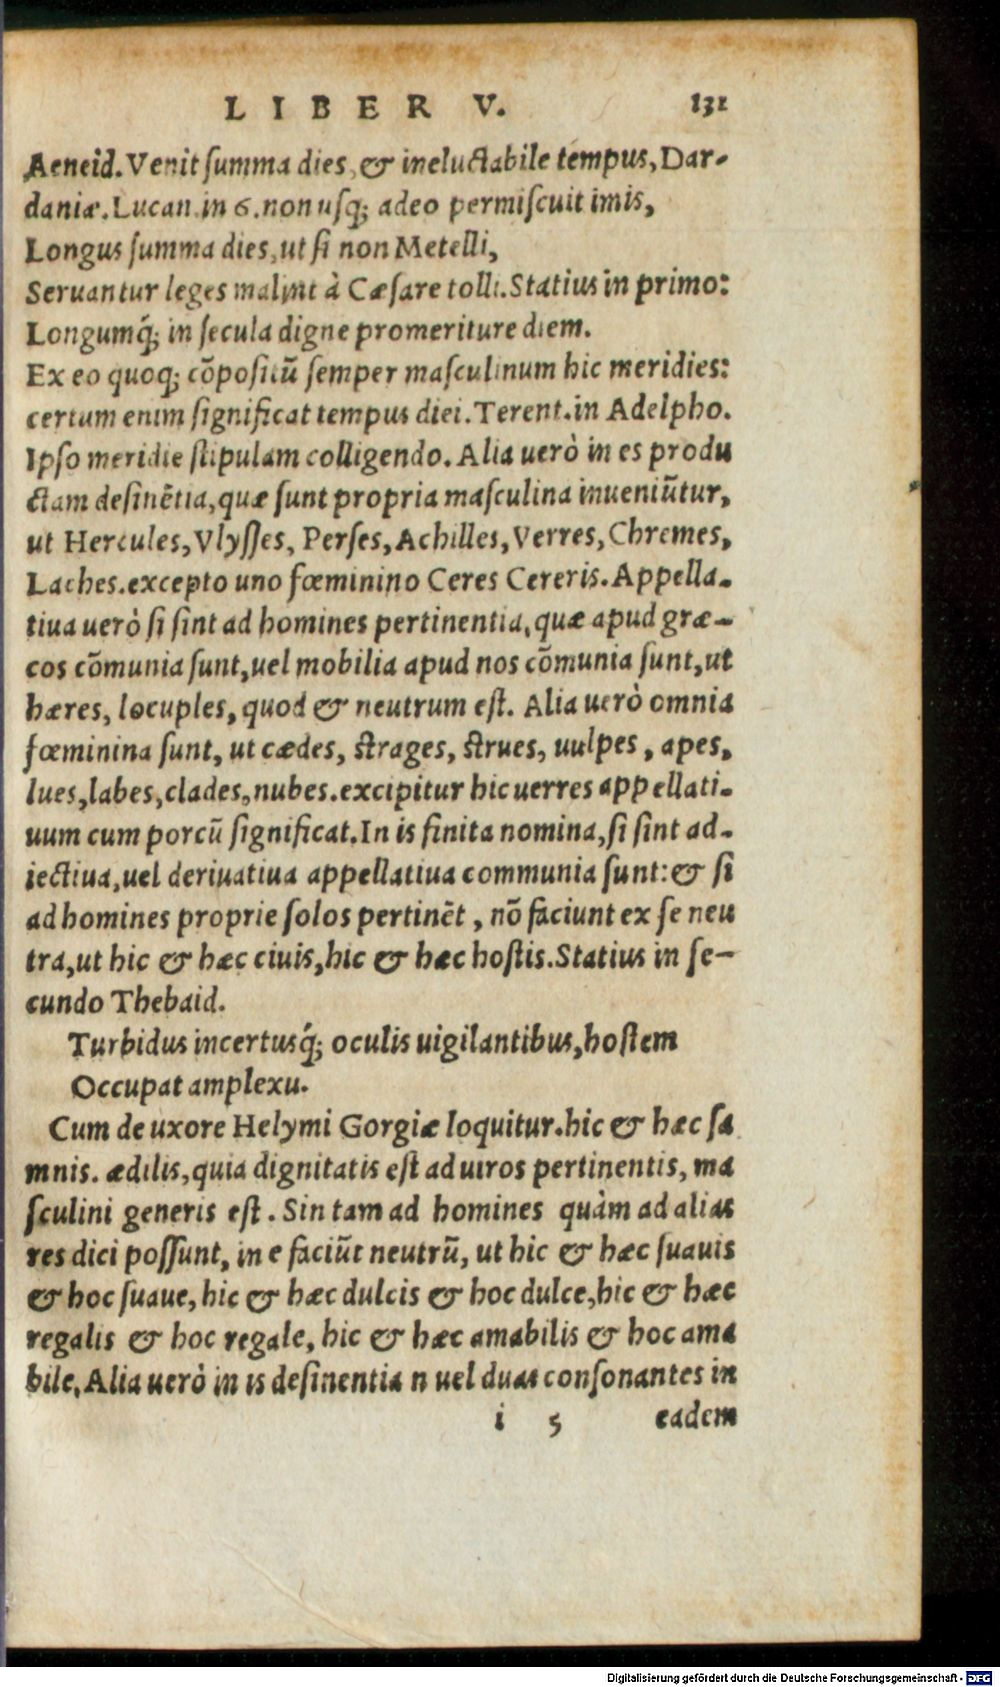 LIBER V. 131
Aeneid. Venit ſumma dies, & ineluctabile tempus, Dar-
daniæ. Lucan. in 6. non uſq; adeo permiſcuit imis,
Longus ſumma dies, ut ſi non Metelli,
Seruantur leges malint à Cæſare tolli. Statius in primo:
Longumq́; in ſecula digne promeriture diem.
Ex eo quoq; cõpoſitũ ſemper maſculinum hic meridies:
certum enim ſignificat tempus diei. Terent. in Adelpho.
Ipſo meridie ſtipulam colligendo. Alia uerò in es produ
ctam deſinẽtia, quæ ſunt propria maſculina inueniũtur,
ut Hercules, Vlyſſes, Perſes, Achilles, Verres, Chremes,
Laches. excepto uno fœminino Ceres Cereris. Appella-
tiua uerò ſi ſint ad homines pertinentia, quæ apud græ-
cos cõmunia ſunt, uel mobilia apud nos cõmunia ſunt, ut
hæres, locuples, quod & neutrum eſt. Alia uerò omnia
fœminina ſunt, ut cædes, ſtrages, ſtrues, uulpes, apes,
lues, labes, clades, nubes. excipitur hic uerres appellati-
uum cum porcũ ſignificat. In is finita nomina, ſi ſint ad-
iectiua, uel deriuatiua appellatiua communia ſunt: & ſi
ad homines proprie ſolos pertinẽt, nõ faciunt ex ſe neu
tra, ut hic & hæc ciuis, hic & hæc hoſtis. Statius in ſe-
cundo Thebaid.
Turbidus incertusq́; oculis uigilantibus, hoſtem
Occupat amplexu.
Cum de uxore Helymi Gorgiæ loquitur. hic & hæc ſa
mnis. ædilis, quia dignitatis eſt ad uiros pertinentis, ma
ſculini generis eſt. Sin tam ad homines quàm ad alias
res dici poſſunt, in e faciũt neutrũ, ut hic & hæc ſuauis
& hoc ſuaue, hic & hæc dulcis & hoc dulce, hic & hæc
regalis & hoc regale, hic & hæc amabilis & hoc ama
bile, Alia uerò in is deſinentia n uel duas conſonantes in
i 5 eadem
Digitalisierung gefördert durch die Deutsche Forschungsgemeinschaft - DFG